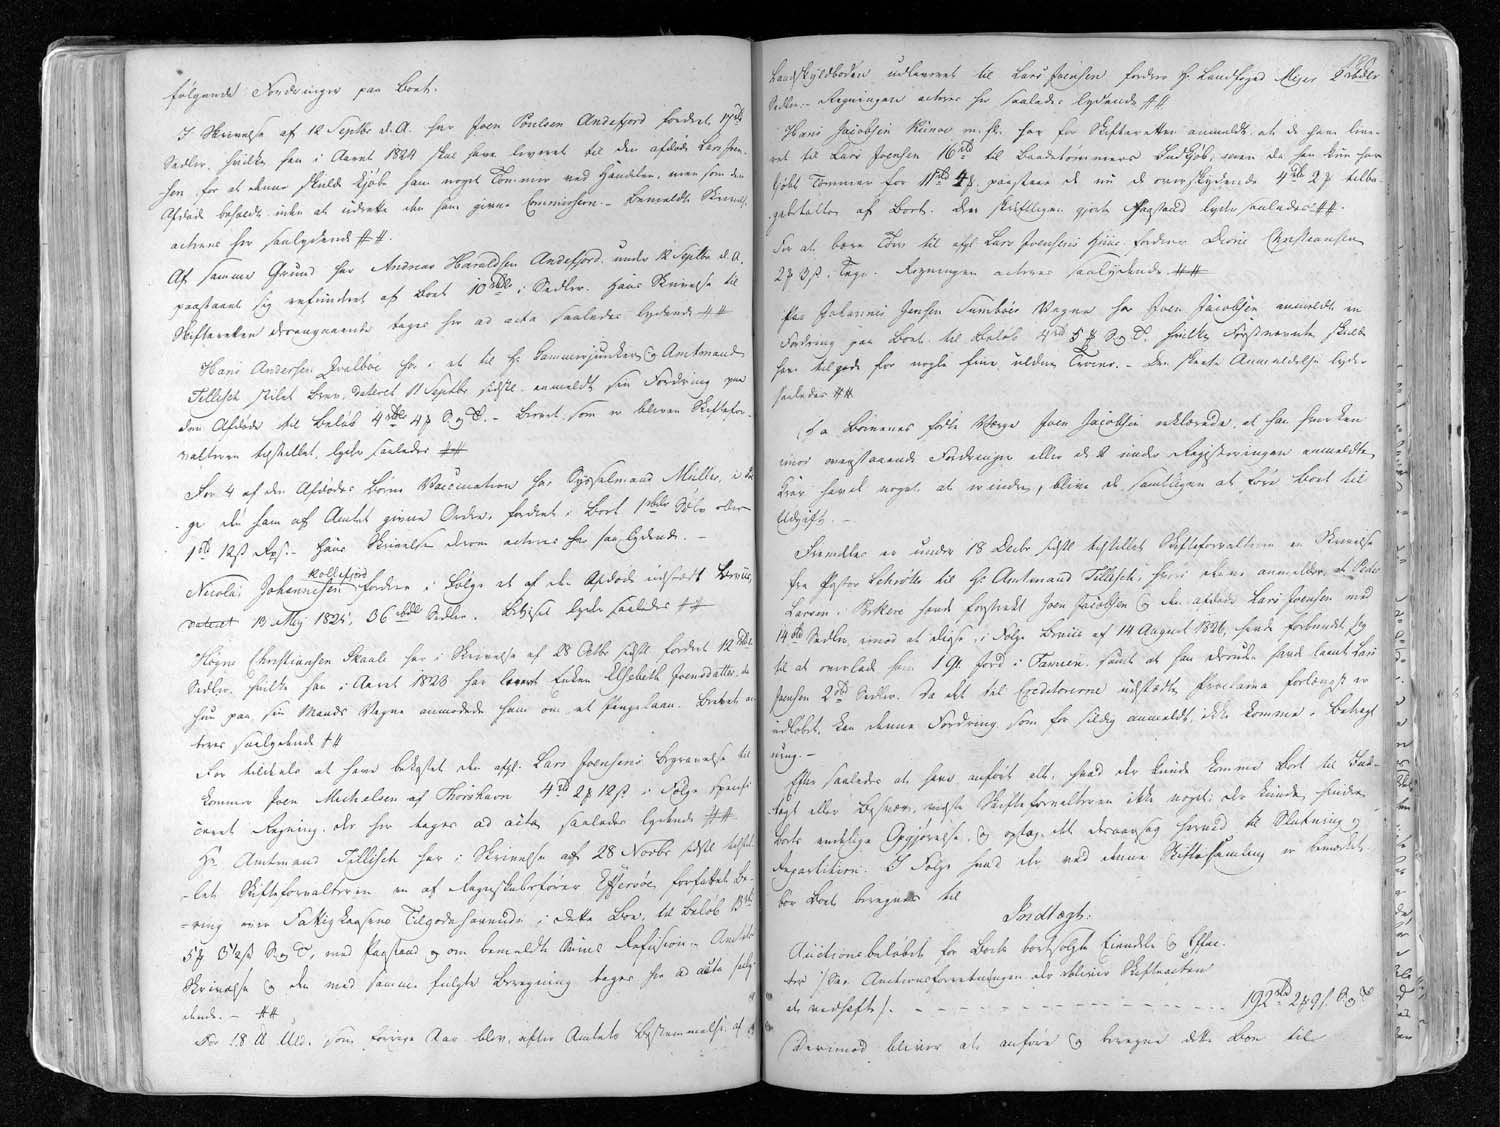 følgende Fordringer paa Boet.
I Skrivelse af 12 Septbr d. A. har Joen Poulsen Andefjord fordret 17 rbd
Sedler, hvilke han i Aaret 1824 skal have leveret til den afdøde Lars Joen-
sen, for at denne skulde kjøbe ham noget Tømmer ved Handelen, men som den
Afdøde beholdt uden at udrette den ham givne Commission. – Bemeldte Skrivelse
acteres her saalydende ##.
Af samme Grund har Andreas Haraldsen Andefjord under 12 Septbr d. A.
paastaaet sig refunderet af Boet 10 rbdlr i Sedler. Hans Skrivelse til
Skifteretten desangaaende tages her ad acta saaledes lydende ##
Hans Andersen Qvalbøe har i et til Hr Kammerjunker og Amtmand
Tillisch stilet Brev, dateret 11 Septbr sidstl. anmeldt sin Fordring paa
den Afdøde til Beløb 4 rbdlr 4 ß S. og T. – Brevet, som er bleven Skiftefor-
valteren tilstillet, lyder saaledes ##
For 4 af den Afdødes Børns Vaccination har Sysselmand Müller, i Føl-
ge den ham af Amtet givne Ordre, fordret i Boet 1 rbdlr Sølv eller
1 rbd 12 ß Rps. – Hans Skrivelse derom acteres her saa lydende. –
Kollefjord
Nicolai Johannesen fordrer i Følge et af den Afdøde udstædt Beviis,
dateret 13 Maj 1825, 36 rbdlr Sedler. Beviset lyder saaledes ##
Høgne Christiansen Skaale har i Skrivelse af 28 Octbr sidstl. fordret 12 rbdlr
Sedler, hvilke han i Aaret 1823 har laant Enken Elsebeth Joensdatter, da
hun paa sin Mands Vegne anmodede ham om et Pengelaan. Brevet ac-
teres saalydende ##
For tildeels at have bekostet den afgl. Lars Joensens Begravelse til-
kommer Joen Michelsen af Thorshavn 4 rbd 2 ß 12 ß i Følge specifi-
ceret Regning, der her tages ad acta saaledes lydende ##
Hr. Amtmand Tillisch har i Skrivelse af 28 Novbr sidstl. tilstil-
let Skifteforvalteren en af Regnskabsfører Effersøe forfattet Be-
regning over Fattigkassens Tilgodehavende i dette Boe, til Beløb 13 rbd
5 ß 3½ ß S. og T., med Paastand om bemeldte Sums Refusion. – Amtets
Skrivelse og den med samme fulgte Beregning tages her ad acta saaly-
dende. – ##
For 18 ℔ Uld, som forrige Aar blev, efter Amtets Bestemmelse, af
Landskyldboden udleveret til Lars Joensen, fordrer Hr Landfoged Mejer
Sedler. – Regningen acteres her saaledes lydende ##
Hans Jacobsen Kunøe m. fl. har for Skifteretten anmeldt, at de have leve-
ret til Lars Joensen 16 rbd til Baadtømmers Indkjøb, men da han kun har
kjøbt Tømmer for 11 rbd 4 ß, paastaae de nu de overskydende 4 rbd 2 ß tilba-
gebetalte af Boet. Den skriftligen gjorte Paastand lyder saaledes ##.
For at bære Tørv til afgl. Lars Joensens Huus fordrer Christiansen
2 ß 3 ß i Tegn. Regningen acteres saalydende ##
Paa Johannes Jensen Sumbøes Vegne har Joen Jacobsen anmeldt en
Fordring paa Boet til Beløb 4 rbd 5 ß S. og T. hvilke Førstnævnte skulde
have tilgode for nogle fine uldne Trøier. – Den skeete Anmeldelse lyder
saaledes ##
Da Børnenes fødte Værge Joen Jacobsen erklærede, at han hverken
imod ovenstaaende Fordringer eller de under Registeringen anmeldte
Krav havde noget at erindre, blive de samtligen at føre Boet til
Udgift. –
Fremdeles er under 18 Decbr sidstl. tilstillet Skifteforvalteren en Skrivelse
fra Pastor Schrøter til Hr. Amtmand Tillisch, hvori denne anmelder, at Peder
Larsen i Porkere havde forstrakt Joen Jacobsen og den afdøde Lars Joensen med
14 rbd Sedler, imod at disse, i Følge Beviis af 14 August 1826, havde forbundet sig
til at overlade ham 1 Gl. Jord i Famien, samt at han desuden havde laant Lars
Joensen 2 rbd Sedler. Da det til Creditorerne udstædte Proclama forlængst er
udløbet, kan denne Fordring, som for sildig anmeldt, ikke komme i Betragt-
ning. –
Efter saaledes at have anført alt, hvad der kunde komme Boet til Ind-
tægt eller Besvær, vidste Skifteforvalteren ikke noget, der kunde hindre
Boets endelige Opgjørelse, og optog det desaarsag hermed til Slutning og
Repartition. I Følge hvad der ved denne Skiftesamling er bemærket,
bør Boet beregnes til
Indtægt:
Auctionsbeløbet for Boets bortsolgte Eiendele og Effec-
ter /: See Auctionsforretningen der bliver Skifteacten
at vedhæfte :/ - - - - - - - - - - 192 rbd 2 ß 9 ß S. og T.
Derimod bliver at anføre og beregne dette Boe til